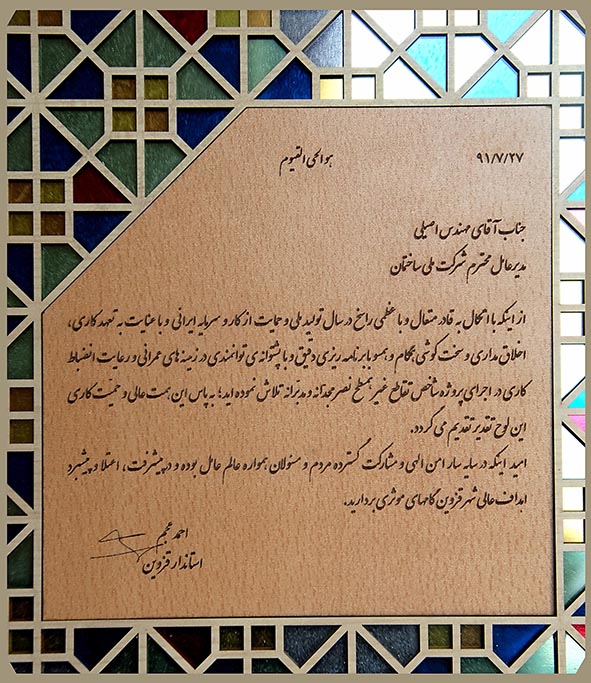 ۹۱/۷/۲۷
هو الحی القیوم
جناب آقای مهندس اصیلی
مدیرعامل محترم شرکت ملی ساختمان
از اینکه با اتکال به قادر متعال و با عظمی راسخ در سال تولید ملی و حمایت از کار و سرمایه ایرانی و با عنایت به تعهد کاری،
اخلاق مداری و سخت کوشی بهنگام و همسو با برنامه ریزی دقیق و با پشتوانه ی توانمندی در زمینه های عمرانی و رعایت انضباط
کاری در اجرای پروژه شاخص تقاطع غیر همسطح نصر مجدانه و مدبرانه تلاش نموده اید؛ به پاس این همت عالی و حمیت کاری
این لوح تقدیر تقدیم می گردد.
امید اینکه در سایه سار امن الهی و مشارکت گسترده مردم و مسئولان همواره عالم عامل بوده و در پیشرفت، اعتلا و پیشبرد
اهداف عالی شهر قزوین گامهای موثری بردارید.
احمد عجم
استاندار قزوین